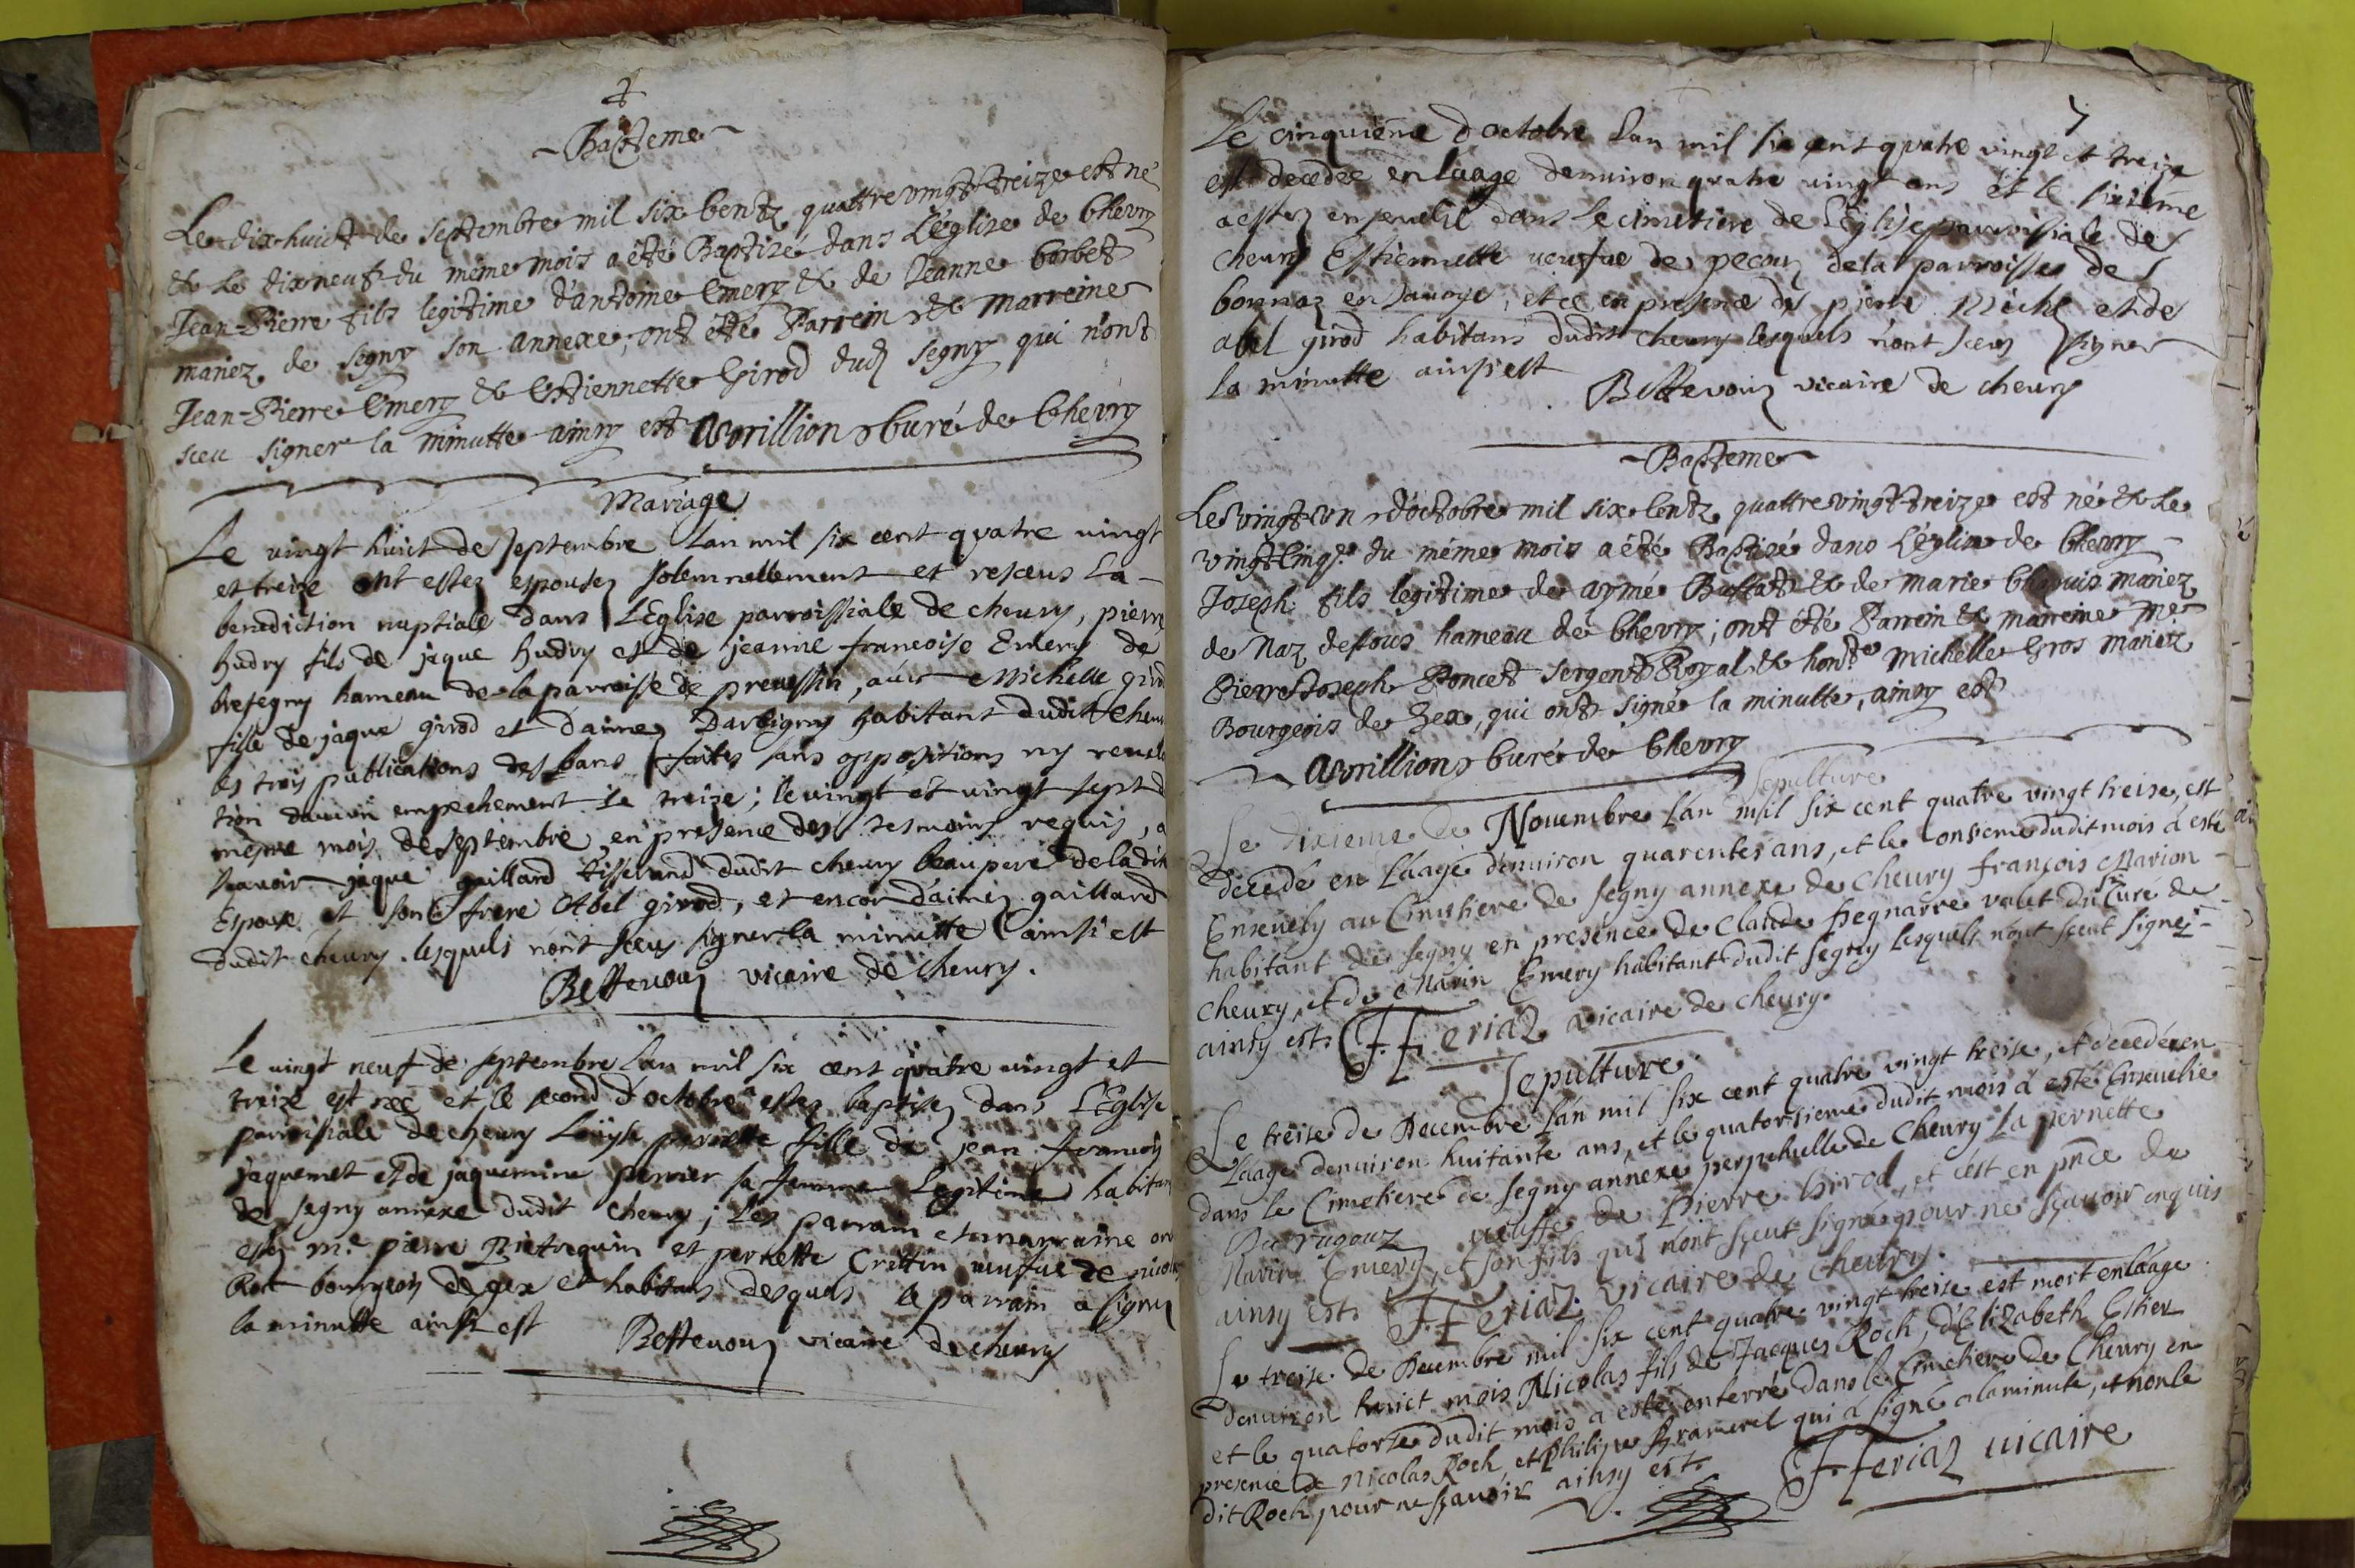 Bapteme
Le dix-huict de septembre mil six centz quattre vingt treize est né
& le dixneuf du méme mois a été Baptizé dans L'église de Chevry
Jean-Pierre fils legitime d'antoine Emery & de Jeanne borbet
mariez de segny son annexe; ont été Parrein & Marreine
Jean-Pierre Emery & Estiennette Girod dud segny qui n'ont
sceu signer la minutte ainsy est Avrillion Curé de Chevry
Mariage
Le vingt huict de septembre Lan mil six cent quatre vingt
et treize ont estez espousez solemnellement et resceus la
benediction nuptiale dans L'Eglise parroissiale de cheury, pierre
hudry fils de jaque hudry et de jeanne francoise Emery de
bresegny hameau de la parroisse de preuessin, auec Michelle girod
fille de jaque girod et d'aimez Darbigny habitant dudit cheu
les trois publications des bans faites sans oppositions ny reuela
tion daucun empechement le treize; le vingt et vingt sept d
mesme mois de septembre en presence des tesmoins requis, a
scauoir jaque gaillard tisserand dudit cheury beaupere de ladit
Espouse et son frere Abel girod, et encor d'aimez gaillard
dudit cheury. lesquels n'ont sceu signer la minutte ainsi est
Bettevouz vicaire de cheury.
Le vingt neuf de septembre Lan mil six cent quatre vingt et
treize est née et le second d'octobre estez baptisez dans L'Eglise
parroissiale de cheury Louyse pernette fille de jean francois
jaquemet et de jaquemine perrier sa femme Legitime habitan
de segny annexe dudit cheury; les parrain et marraine on
estez me pierre et pernette Crettin veufue de nicolas
Roct bourgeois de gex et habitans desquels le parrain a signez
la minutte ainsi est Bettevouz vicaire de cheury
7
Le cinquieme d'octobre Lan mil six cent quatre vingt et treize
est decedez en laage denuiron quatre vingt ans et le sixieme
a estez enseuelie dans le cimetiere de l'Eglise parroissiale de
cheury Estiennette veufue de pecouz de la parroisse de
bonnaz en sauoye, et ce en presence de pierre et de
abel girod habitans dudit cheury lesquels n'ont sceu signer
la minutte ainsi est Bettevouz vicaire de cheury
Baptême
Le vingt-un d'octobre mil six centz quattre vingt-treize est né & le
vingt-cinqe. du méme mois a été Baptizé dans L'église de Chevry
Joseph fils legitime de aymé Buffat & de marie Chapuis mariez
de Naz dessous hameau de Chevry; ont été Parrein & marreine Me
Pierre Joseph Poncet sergent Royal & honte Michelle Gros mariez
Bourgeois de Gex, qui ont signé la minutte, ainsy est
Avrillion Curé de Chevry
Sepulture
Le dixieme de Nouembre l'an mil six cent quatre vingt treise, est
décédé en l'aage d'enuiron quarentes ans, et le onsieme dudit mois à esté
Enseuely au Cimetiere de segny annexe de cheury françois Marion
habitant de segny en presence de Claude Hegnarre valet du sr Curé de
cheury, et de Marin Emery habitant dudit segny lesquels n'ont sceut signer
ainsy est. F. Feriaz vicaire de cheury.
Sepulture.
Le treise de Decembre l'an mil six cent quatre vingt treise, et decedée en
l'aage denuiron huitante ans, et le quatorsieme dudit mois à esté Enseuelie
dans le Cimetiere de segny annexe perpetuelle de cheury la pernette
Durugouz veuffe de Pierre Girod, et c'est en pnce de
Marin Emery, et son fils qui n'ont sçeut signé pour ne sçauoir enquis
ainsy est. F. Feriaz. vicaire de cheury.
Le treise de Decembre mil six cent quatre vingt treise est mort en l'aage
denuiron huict mois Nicolas fils de Jacques Roch, d'Elizabeth Estier
et le quatorse dudit mois a esté enterré dans le Cimetiere de Cheury en
presence de Nicolas Roch, et Philipe qui à signé a la minute, et non le
dit Roch pour ne sçauoir ainsy est. F. Feriaz vicaire